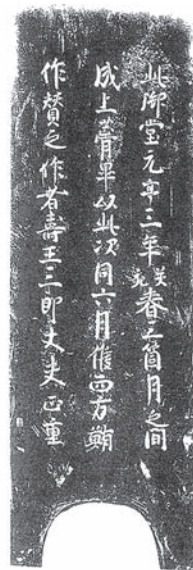 此御堂元亨三年癸亥春三箇月之間
成上葺畢以此次同六月西方
作賛之作者壽王三郎大夫正重